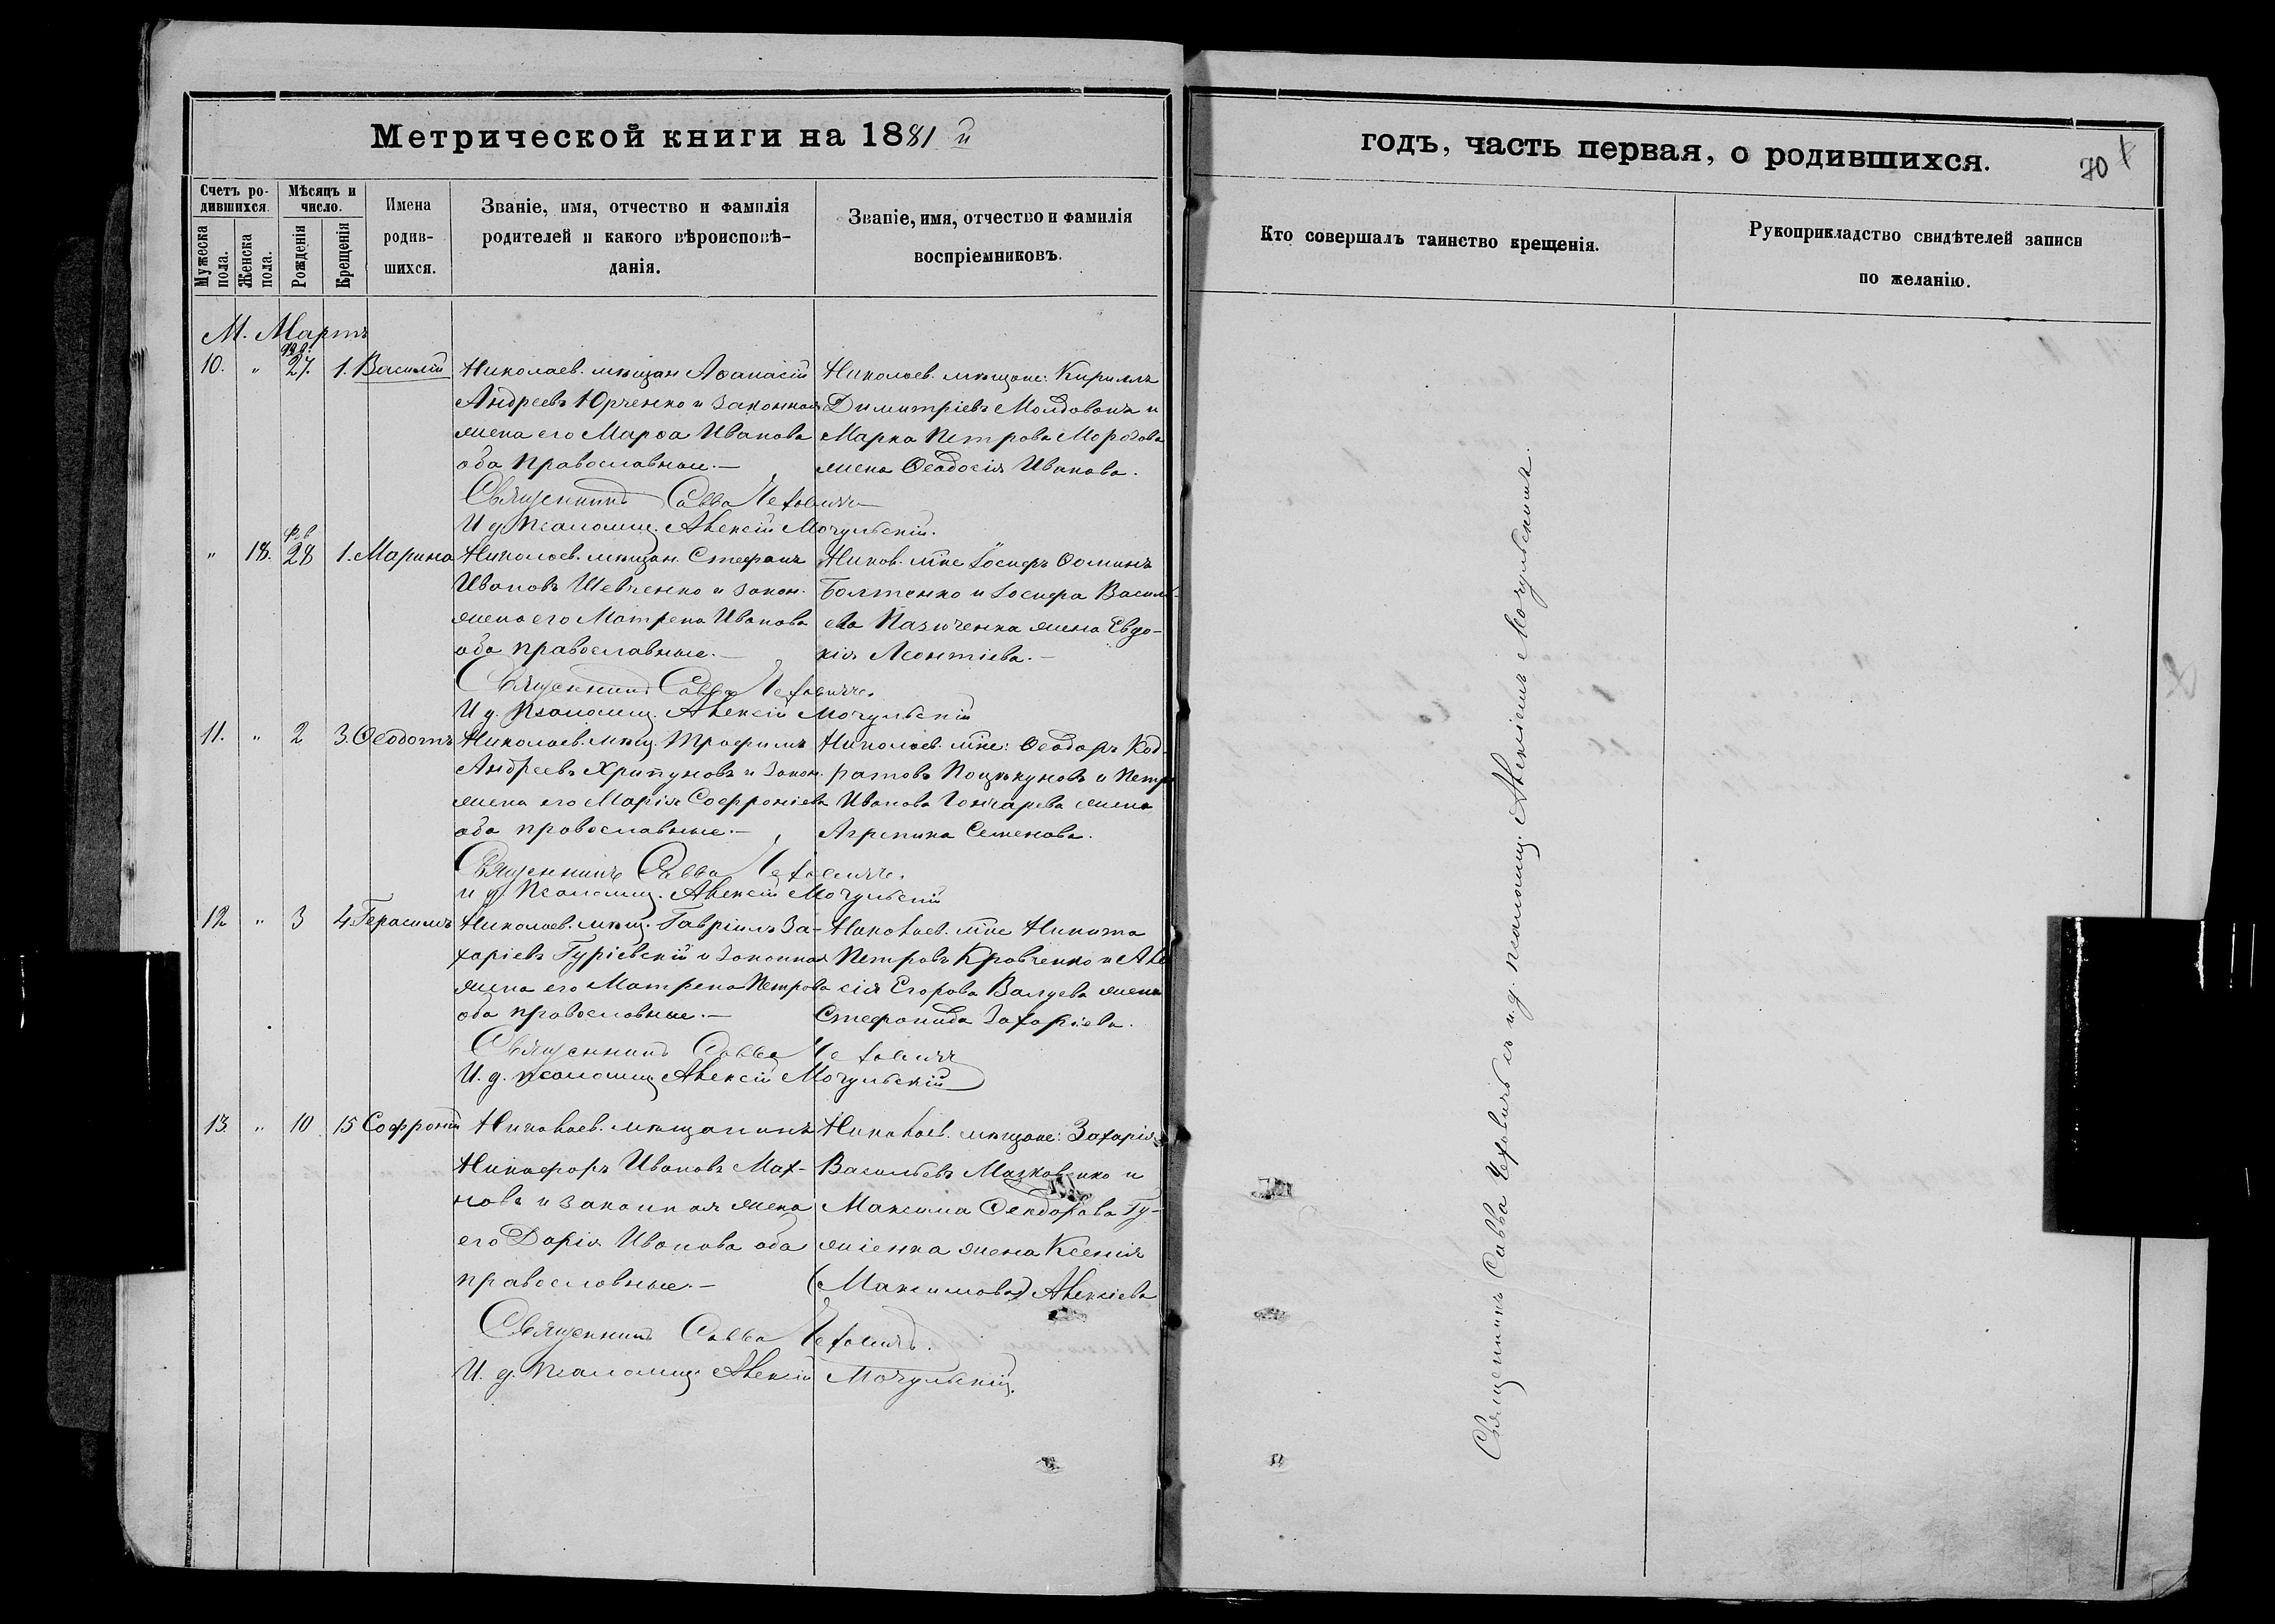 Метрической книги на 1881 й
Счетъ родившихся.
Мужеска пола.
Женска пола.
Мѣсяцъ и число.
Рожденія
Крещенія
Имена родившихся.
Званіе, имя, отчество и фамилія родителей и какого вѣроисповѣданія.
Званіе, имя, отчество и фамилія воспріемниковъ.
М. Мартъ
10. " Фев. 27. 1. Василій
Николаев. мѣщан Аѳанасій
Андреевъ Юрченко и законная
жена его Марѳа Иванова
оба православные.—
Николаев. мѣщане: Кириллъ
Димитріевъ Молдованъ и
Марка Петрова Морозова
жена Ѳеодосія Иванова.
Священникъ Савва Чеховичъ
И д. псаломщ. Алексій Мочульскій.
" 18. Фев 28 1. Марина
Николаев. мѣщан. Стефанъ
Ивановъ Шевченко и закон.
жена его Матрена Иванова
оба православные.—
Никол. мѣне Іосифъ Ѳоминъ
Болтенко и Іосифа Василь-
ева Пазюченка жена Евдо-
кія Леонтіева.—
Священникъ Савва Чеховичъ.
И д. Псаломщ. Алексій Мочульскій
11. " 2 3. Ѳеодотъ
Николаев. мѣщ. Трофимъ
Андреевъ Хрипуновъ и закон.
жена его Марія Софроніева
оба православные.—
Николаев. мѣне: Ѳеодоръ Код-
ратовъ и Петра
Иванова Гончарева жена
Агрепина Семенова.
Священникъ Савва Чеховичъ.
и д. Псаломщ. Алексій Мочульскій
12 " 3 4 Герасимъ
Николаев. мѣщ. Гавріилъ За-
харіевъ Гуріевскій и законная
жена его Матрена Петрова
оба православные.—
Николаев. мѣне Никита
Петровъ Кравченко и Але
сія Егорова Валуева жена
Стефанида Захаріева.
Священникъ Савва Чеховичъ
И. д. псаломщ Алексій Мочульскій
13. " 10 15 Софроній
Николаев. мѣщанинъ
Никифоръ Ивановъ Мах-
новъ и законная жена
его Дарія Иванова оба
православные.—
Николаев. мѣщане: Захарія
Васильевъ Мазковенко и
Максима Ѳеодорова Гу-
жіенка жена Ксенія
(Максимова) Алексіева
Священникъ Савва Чеховичъ.
И. д. Псаломщ Алексій Мочульскій.
годъ, часть первая, о родившихся.
70
Кто совершалъ таинство крещенія.
Рукоприкладство свидѣтелей записи по желанію.
Священникъ Савва Чеховичъ съ и. д. псаломщ. Алексіемъ Мочульскимъ.